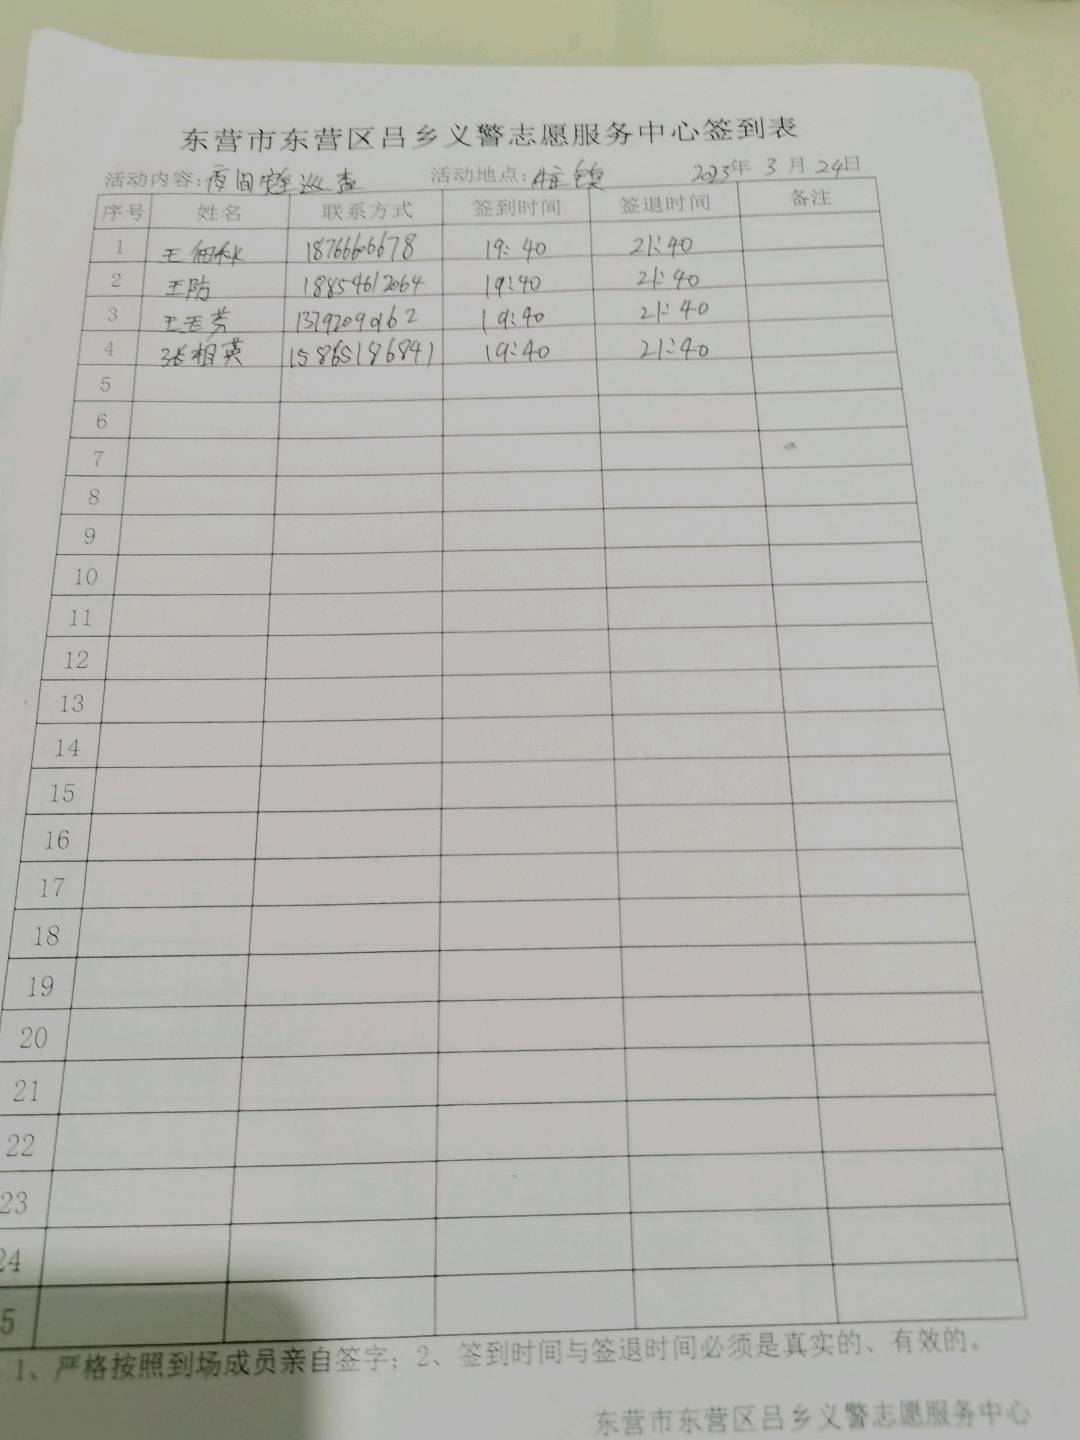 东营市东营区吕乡义警志愿服务中心签到表
活动内容:夜间安全巡查 活动地点: 镇 2023年 3 月 24日
序号 姓名 联系方式 签到时间 签退时间 备注
1 王佃秋 18766606678 19:40 21:40
2 王防 18854612064 19:40 21:40
3 王玉芳 13792090162 19:40 21:40
4 张相英 15865186841 19:40 21:40
5
6
7
8
9
10
11
12
13
14
15
16
17
18
19
20
21
22
23
24
5
1、严格按照到场成员亲自签字；2、签到时间与签退时间必须是真实的、有效的。
东营市东营区吕乡义警志愿服务中心